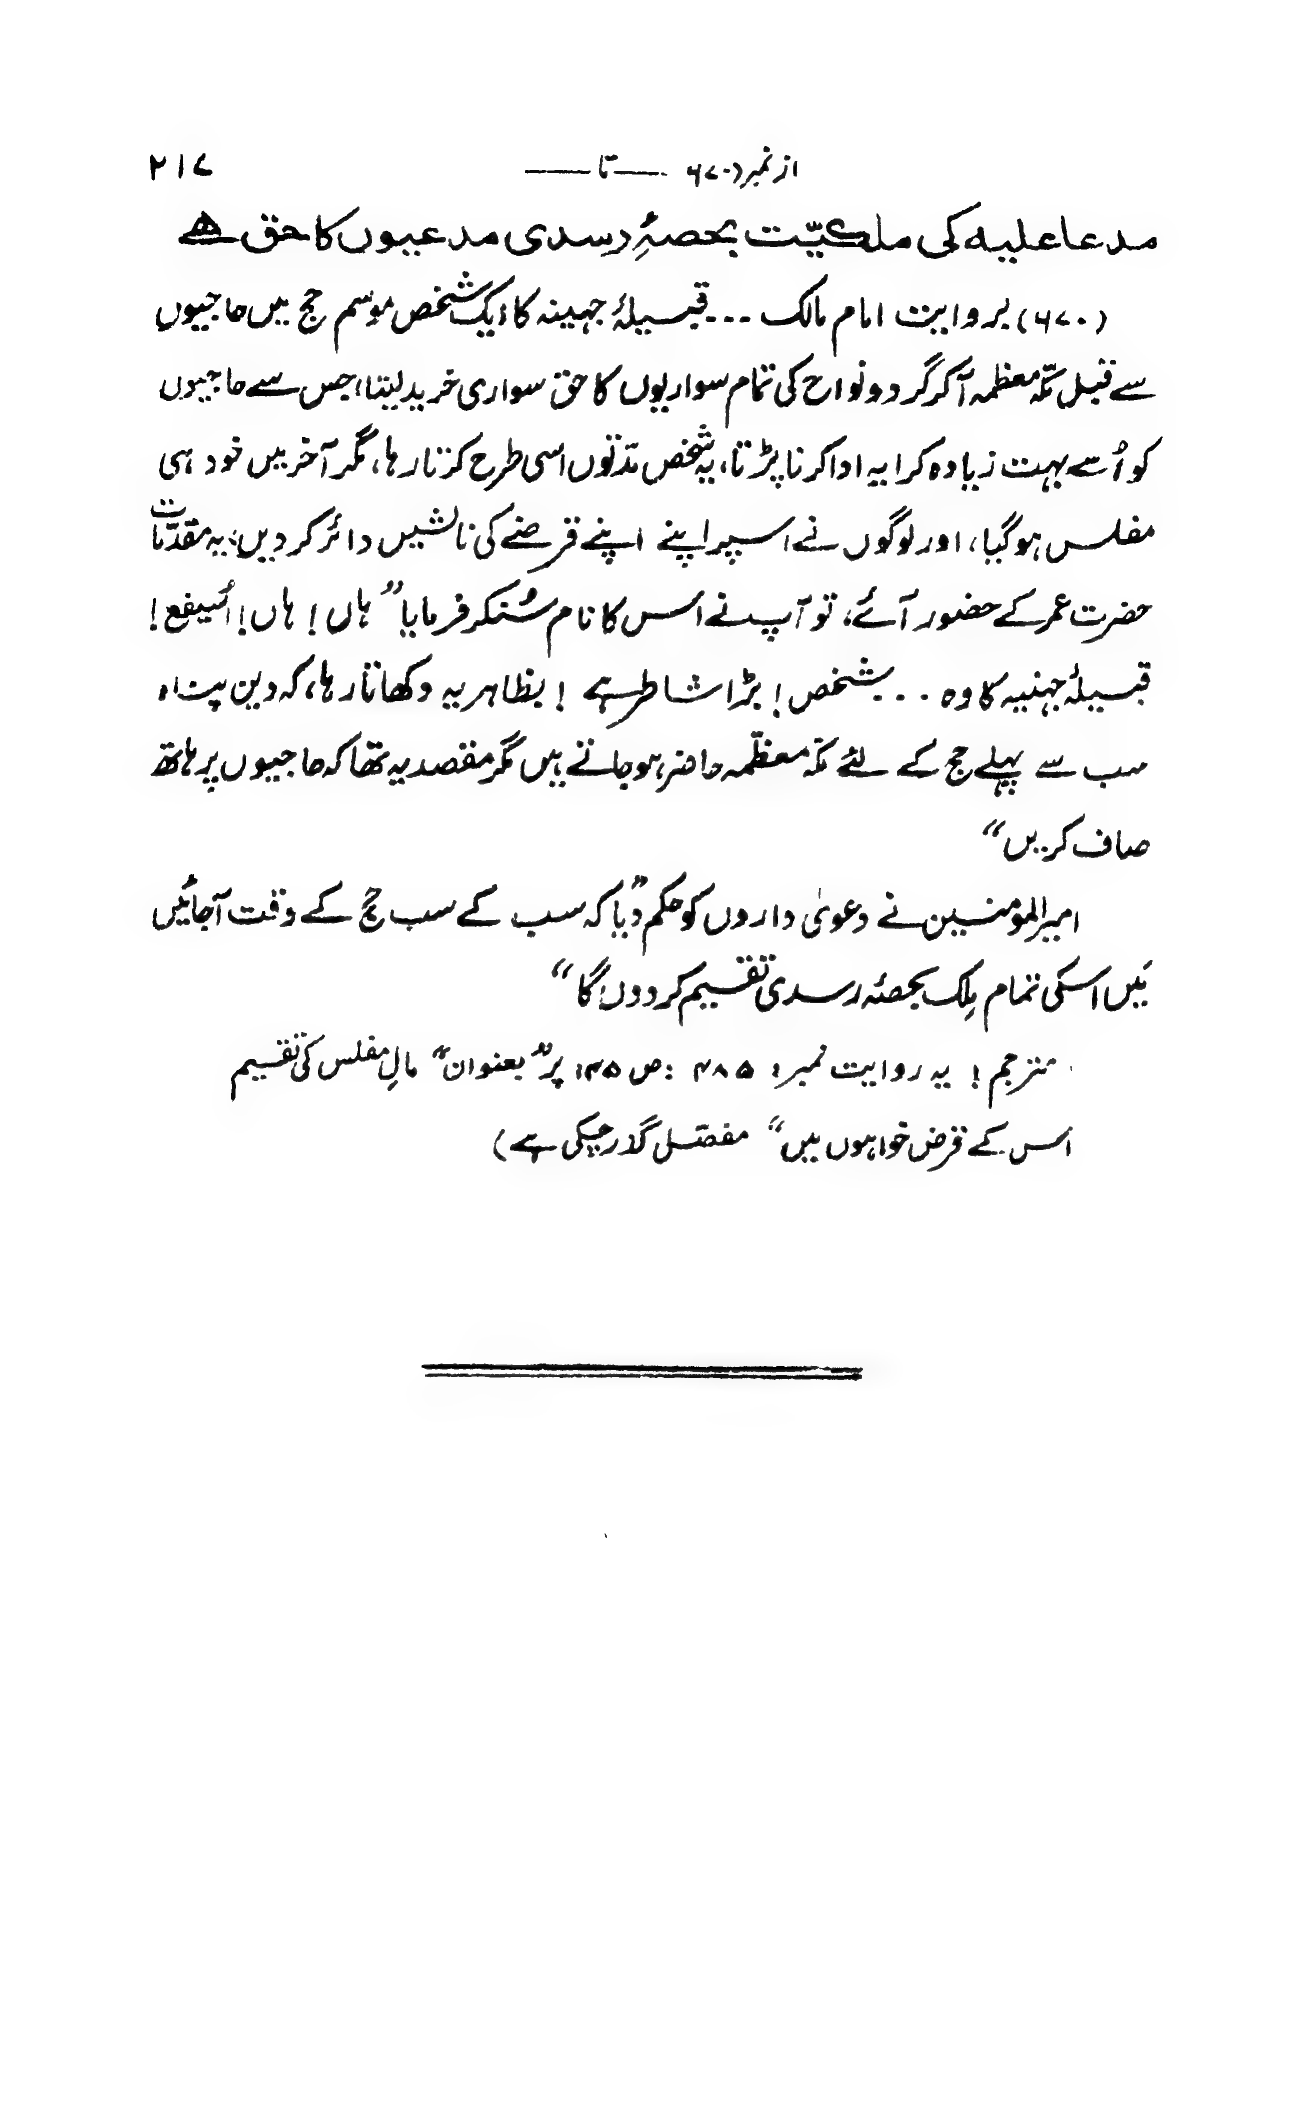 از نمبر (۶۷۰ —— تا —— ۲۱۷
مدعا علیہ کی ملکیّت بحصۂِ رسدی مدعیوں کا حق ہے
(۶۷۰) بروایت امام مالک ... قبیلۂ جہینہ کا ایک شخص موسم حج میں حاجیوں
سے قبل مکّہ معظمہ آکر گرد و نواح کی تمام سواریوں کا حق سواری خرید لیتا، جس سے حاجیوں
کو اُسے بہت زیادہ کرایہ ادا کرنا پڑتا، یہ شخص مدّتوں اسی طرح کرتا رہا، مگر آخر میں خود ہی
مفلس ہو گیا، اور لوگوں نے اسپر اپنے اپنے قرضے کی نالشیں دائر کر دیں: یہ مقدّمات
حضرت عمر کے حضور آئے، تو آپ نے اس کا نام سُنکر فرمایا ”ہاں! ہاں! اُسیفع!
قبیلۂ جہنیہ کا وہ .. شخص! بڑا شاطر ہے! بظاہر یہ دکھاتا رہا، کہ دین پناہ
سب سے پہلے حج کے لئے مکّہ معظّمہ حاضر ہو جاتے ہیں مگر مقصد یہ تھا کہ حاجیوں پر ہاتھ
صاف کریں“
امیرالمؤمنین نے دعویٰ داروں کو حکم دیا ”کہ سب کے سب حج کے وقت آجائیں
مَیں اسکی تمام مِلک بحصّہ رسدی تقسیم کر دوں گا“
مترجم! یہ روایت نمبر: ۴۸۵ :ص ۱۴۵ پر ”بعنوان“ مالِ مفلس کی تقسیم
اس کے قرض خواہوں میں“ مفصّل گذر چکی ہے)